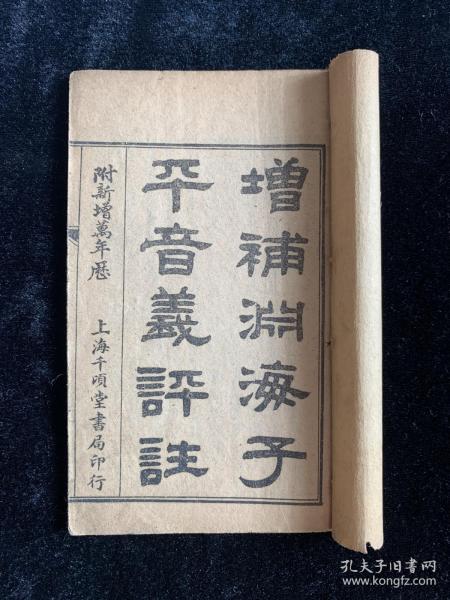 增補淵海子
平音義評註
附新增萬年曆
上海千頃堂書局印行
孔夫子旧书网
www.kongfz.com